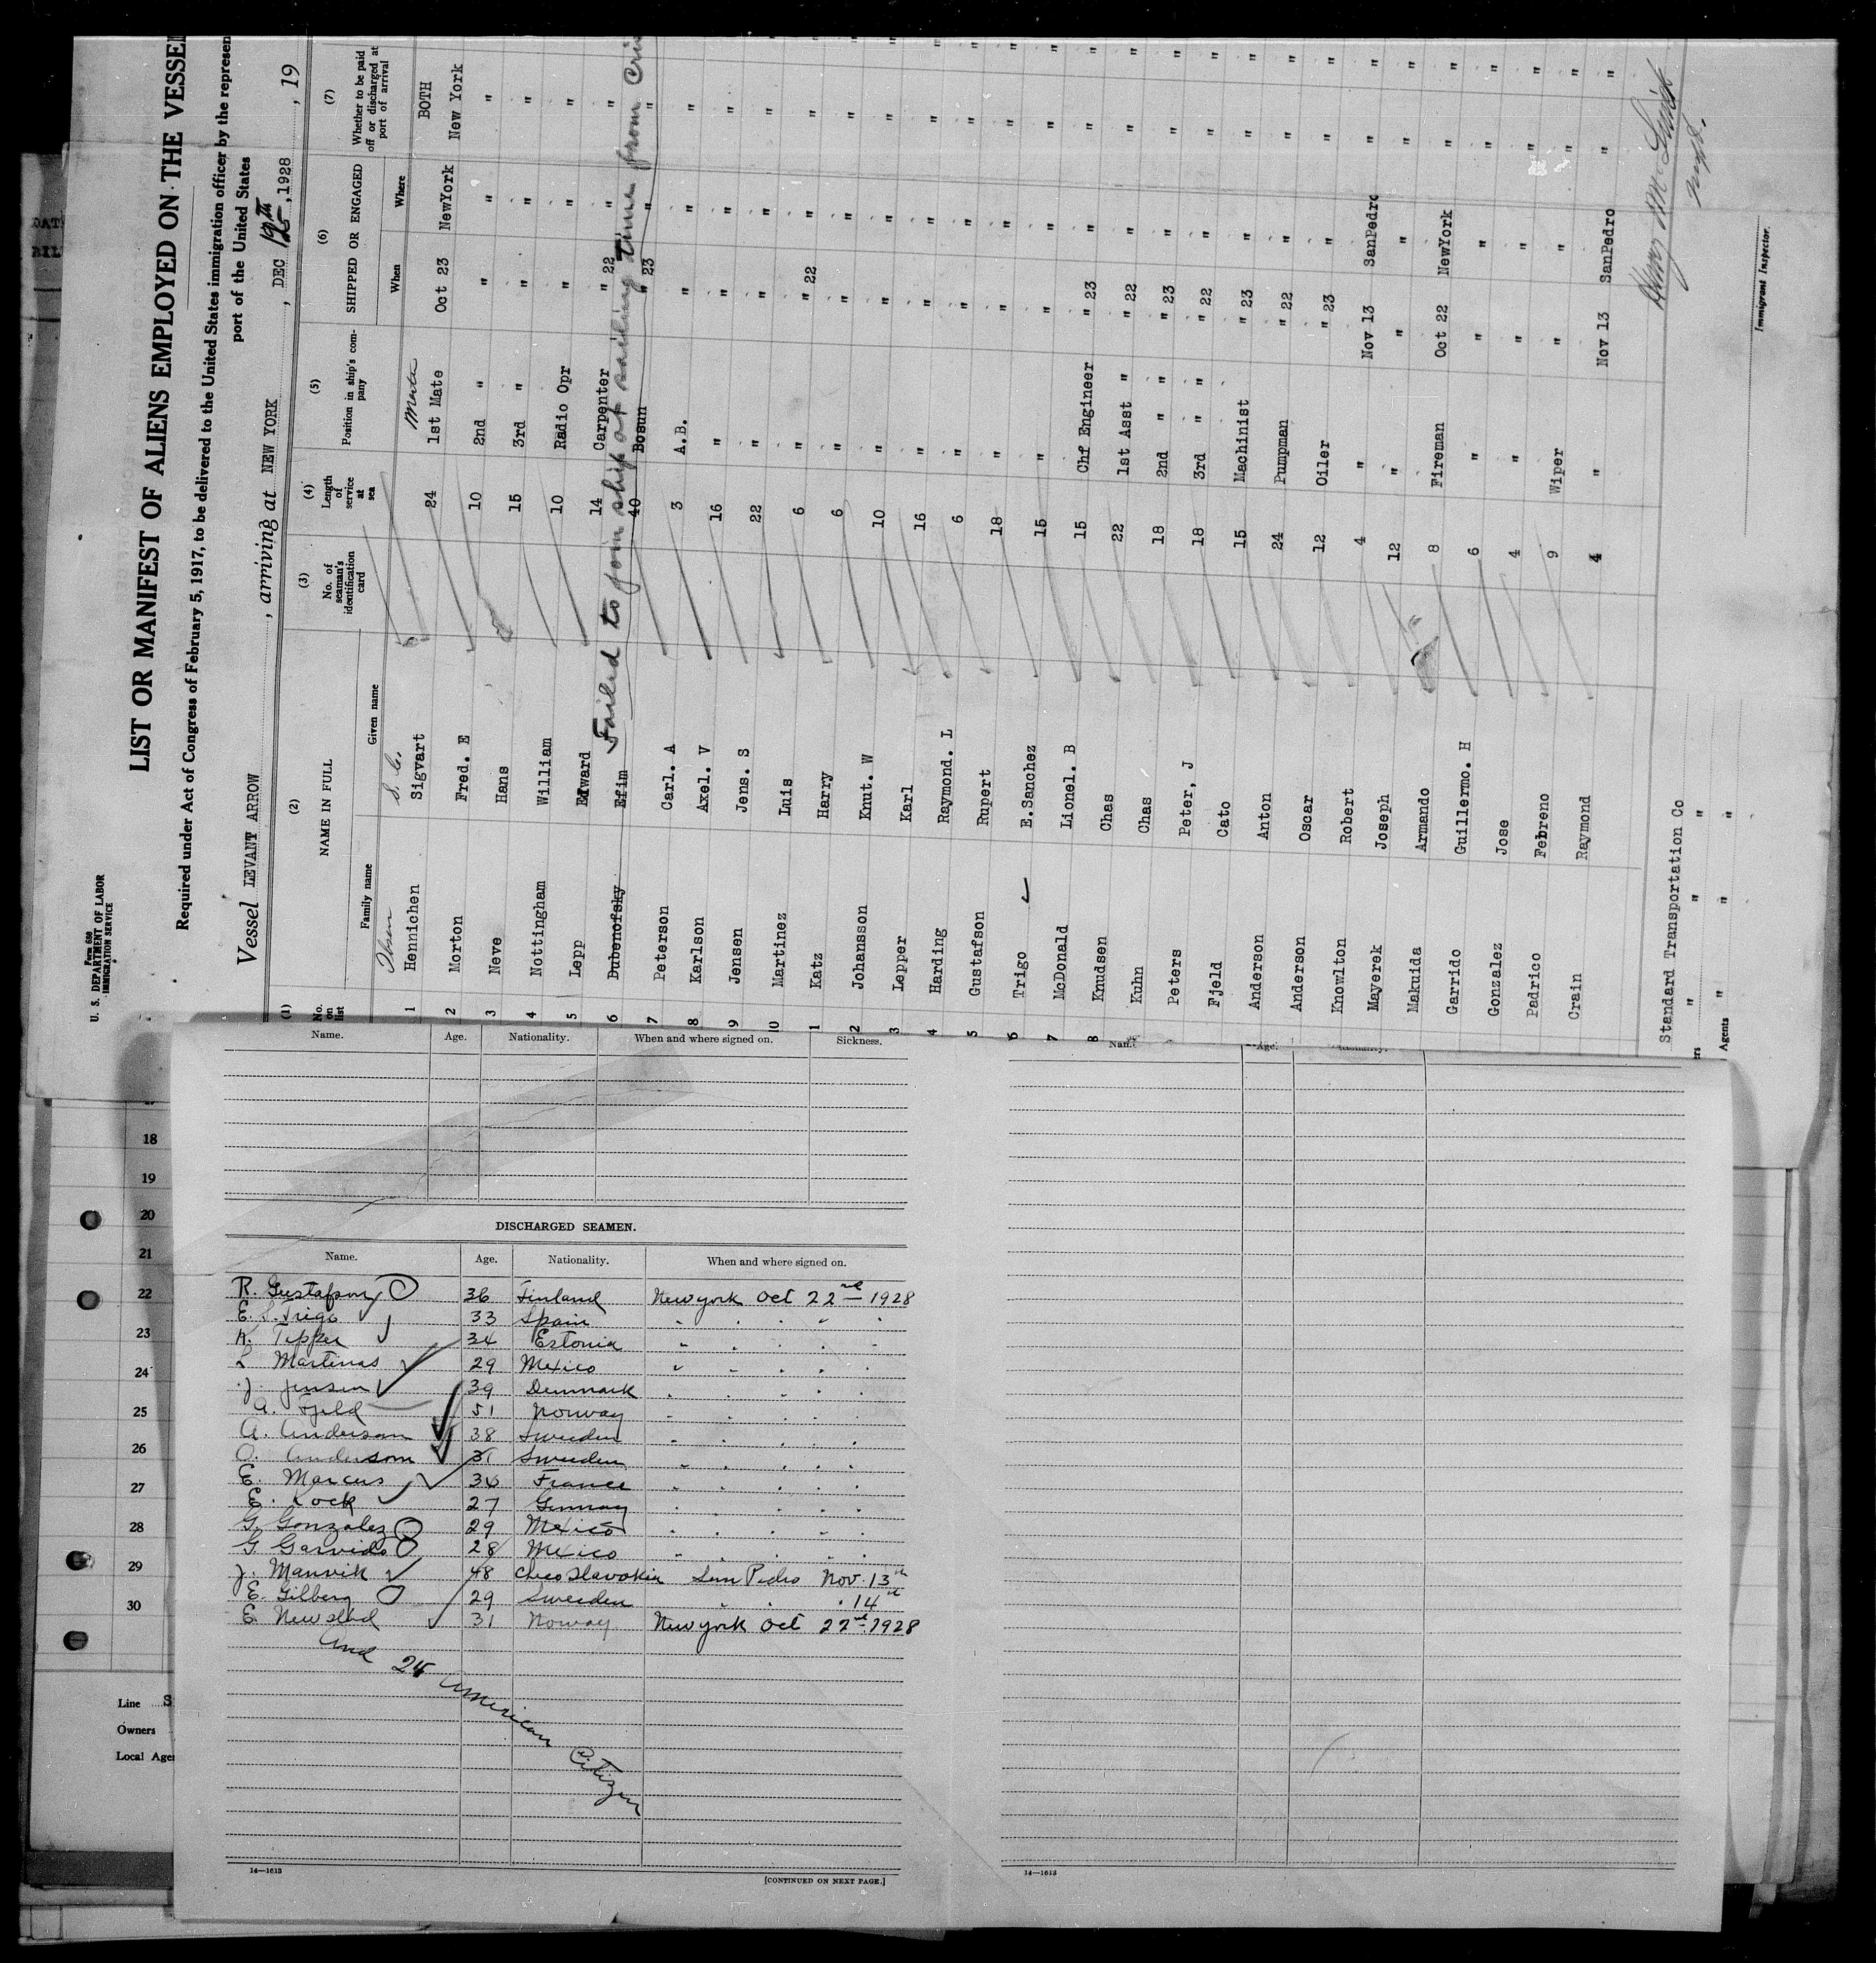 Form 680
U. S. DEPARTMENT OF LABOR
IMMIGRATION SERVICE
LIST OR MANIFEST OF ALIENS EMPLOYED ON THE VESSEL
Required under Act of Congress of February 5, 1917, to be delivered to the United States immigration officer by the represen
port of the United States
Vessel LEVANT ARROW, arriving at NEW YORK, DEC 19th, 1928, 19
(1) (2) (3) (4) (5) (6) (7)
No. on list NAME IN FULL No. of seaman's identification card Length of service at sea Position in ship's company SHIPPED OR ENGAGED Whether to be paid off or discharged at port of arrival
Family name Given name When Where
Olsen S. C. Master BOTH
1 Hennichen Sigvart 24 1st Mate Oct 23 NewYork New York
2 Morton Fred. E 10 2nd " " " "
3 Neve Hans 15 3rd " " " "
4 Nottingham William 10 Radio Opr " " "
5 Lepp Edward 14 Carpenter " 22 " "
6 Dubenofsky Efim 40 Bosun " 23 " "
Failed to join ship at sailing time from Cris
7 Peterson Carl. A 3 A.B. " " "
8 Karlson Axel. V 16 " " " "
9 Jensen Jens. S 22 " " " "
10 Martinez Luis 6 " " 22 " "
1 Katz Harry 6 " " " "
2 Johansson Knut. W 10 " " " "
3 Lepper Karl 16 " " " "
4 Harding Raymond. L 6 " " " "
5 Gustafson Rupert 18 " " " "
6 Trigo E.Sanchez 15 " " " "
7 McDonald Lionel. B 15 Chf Engineer " 23 " "
8 Knudsen Chas 22 1st Asst " " 22 " "
Kuhn Chas 18 2nd " " " 23 " "
Peters Peter, J 18 3rd " " " 22 " "
Fjeld Cato 15 Machinist " 23 " "
Anderson Anton 24 Pumpman " 22 " "
Anderson Oscar 12 Oiler " 23 " "
Knowlton Robert 4 " Nov 13 SanPedro "
Mayerek Joseph 12 " " " "
Makuida Armando 8 Fireman Oct 22 NewYork "
Garrido Guillermo. H 6 " " " "
Gonzalez Jose 4 " " " "
Padrico Febreno 9 Wiper " " "
Crain Raymond 4 " Nov 13 SanPedro "
Standard Transportation Co
" " "
Agents " " "
Immigrant Inspector.
Name. Age. Nationality. When and where signed on. Sickness.
DISCHARGED SEAMEN.
Name. Age. Nationality. When and where signed on.
R. Gustafson 36 Finland New york Oct 22nd 1928
E. S. Trigo 33 Spain " " " " "
K. Lepper 34 Estonia " " " " "
L Martinas 29 Mexico " " " " "
J. Jensen 39 Denmark " " " " "
a. Fjeld 51 Norway " " " " "
A. Anderson 38 Sweden " " " " "
O. Anderson 31 Sweden " " " " "
E. Marcus 36 France " " " " "
E. Kock 27 Germay " " " "
G Gonzalez 29 Mexico " " " " "
G Garvido 28 Mexico " " " " "
J. Manvik 48 Checo Slavokia San Pedro Nov. 13th
E. Gilberg 29 Sweden " " " 14th
E. Newslad 31 Norway New york Oct 22nd 1928
And 24 American Citizen
14—1613
[CONTINUED ON NEXT PAGE.]
14—1613
18
19
20
21
22
23
24
25
26
27
28
29
30
Line S
Owners
Local Age